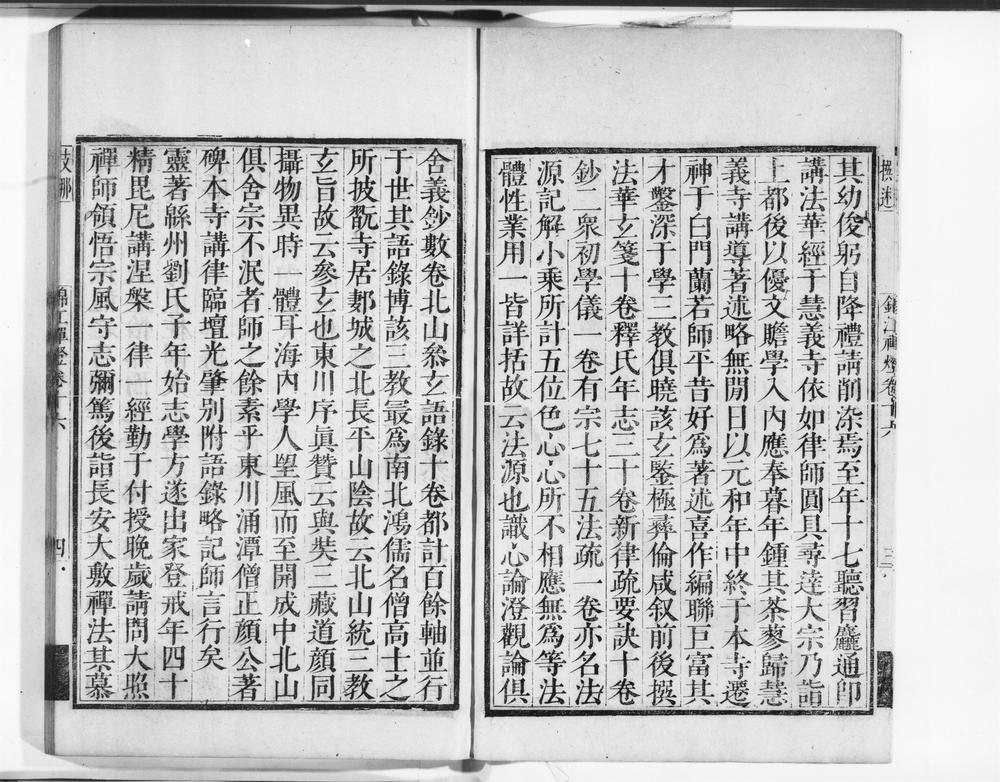 其幼俊躬自降禮請削染焉至年十七聽習麤通師
講法華經于慧義寺依如律師圓具尋達大宗乃詣
上都後以優文贍學入內應奉暮年鍾其茶蓼歸慧
義寺講導著述略無閒日以元和年中終于本寺遷
神于白門蘭若師平昔好爲著述喜作編聯巨富其
才鑿深于學三教俱曉該玄鑒極彞倫咸叙前後撰
法華玄箋十卷釋氏年志三十卷新律疏要訣十卷
鈔二衆初學儀一卷有宗七十五法疏一卷亦名法
源記解小乘所計五位色心心所不相應無爲等法
體性業用一皆詳括故云法源也識心論澄觀論俱
舍義鈔數卷北山叅玄語錄十卷都計百餘軸並行
于世其語錄博該三教最爲南北鴻儒名僧高士之
所披翫寺居郪城之北長平山陰故云北山統三教
玄旨故云參玄也東川序眞贊云與奘三藏道顏同
攝物異時一體耳海內學人朢風而至開成中北山
俱舍宗不泯者師之餘素乎東川涌潭僧正顔公著
碑本寺講律臨壇光肇別附語錄略記師言行矣
靈著緜州劉氏子年始志學方遂出家登戒年四十
精毘尼講涅槃一律一經勤于付授晚歲請問大照
禪師領悟宗風守志彌篤後詣長安大敷禪法其慕
錦江禪燈卷十六
四